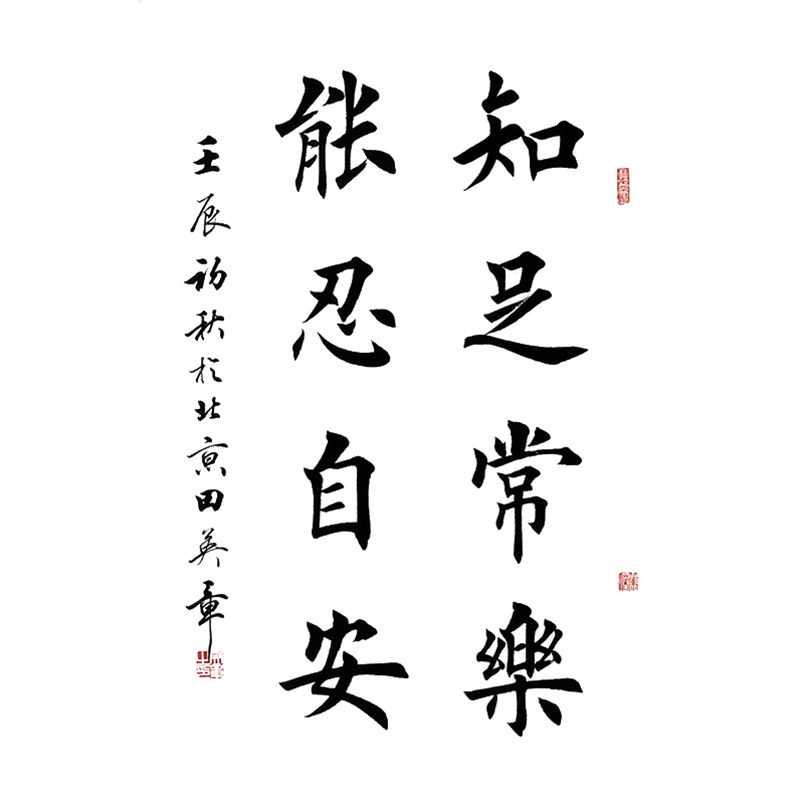 知足常樂
能忍自安
壬辰初秋於北京田英章